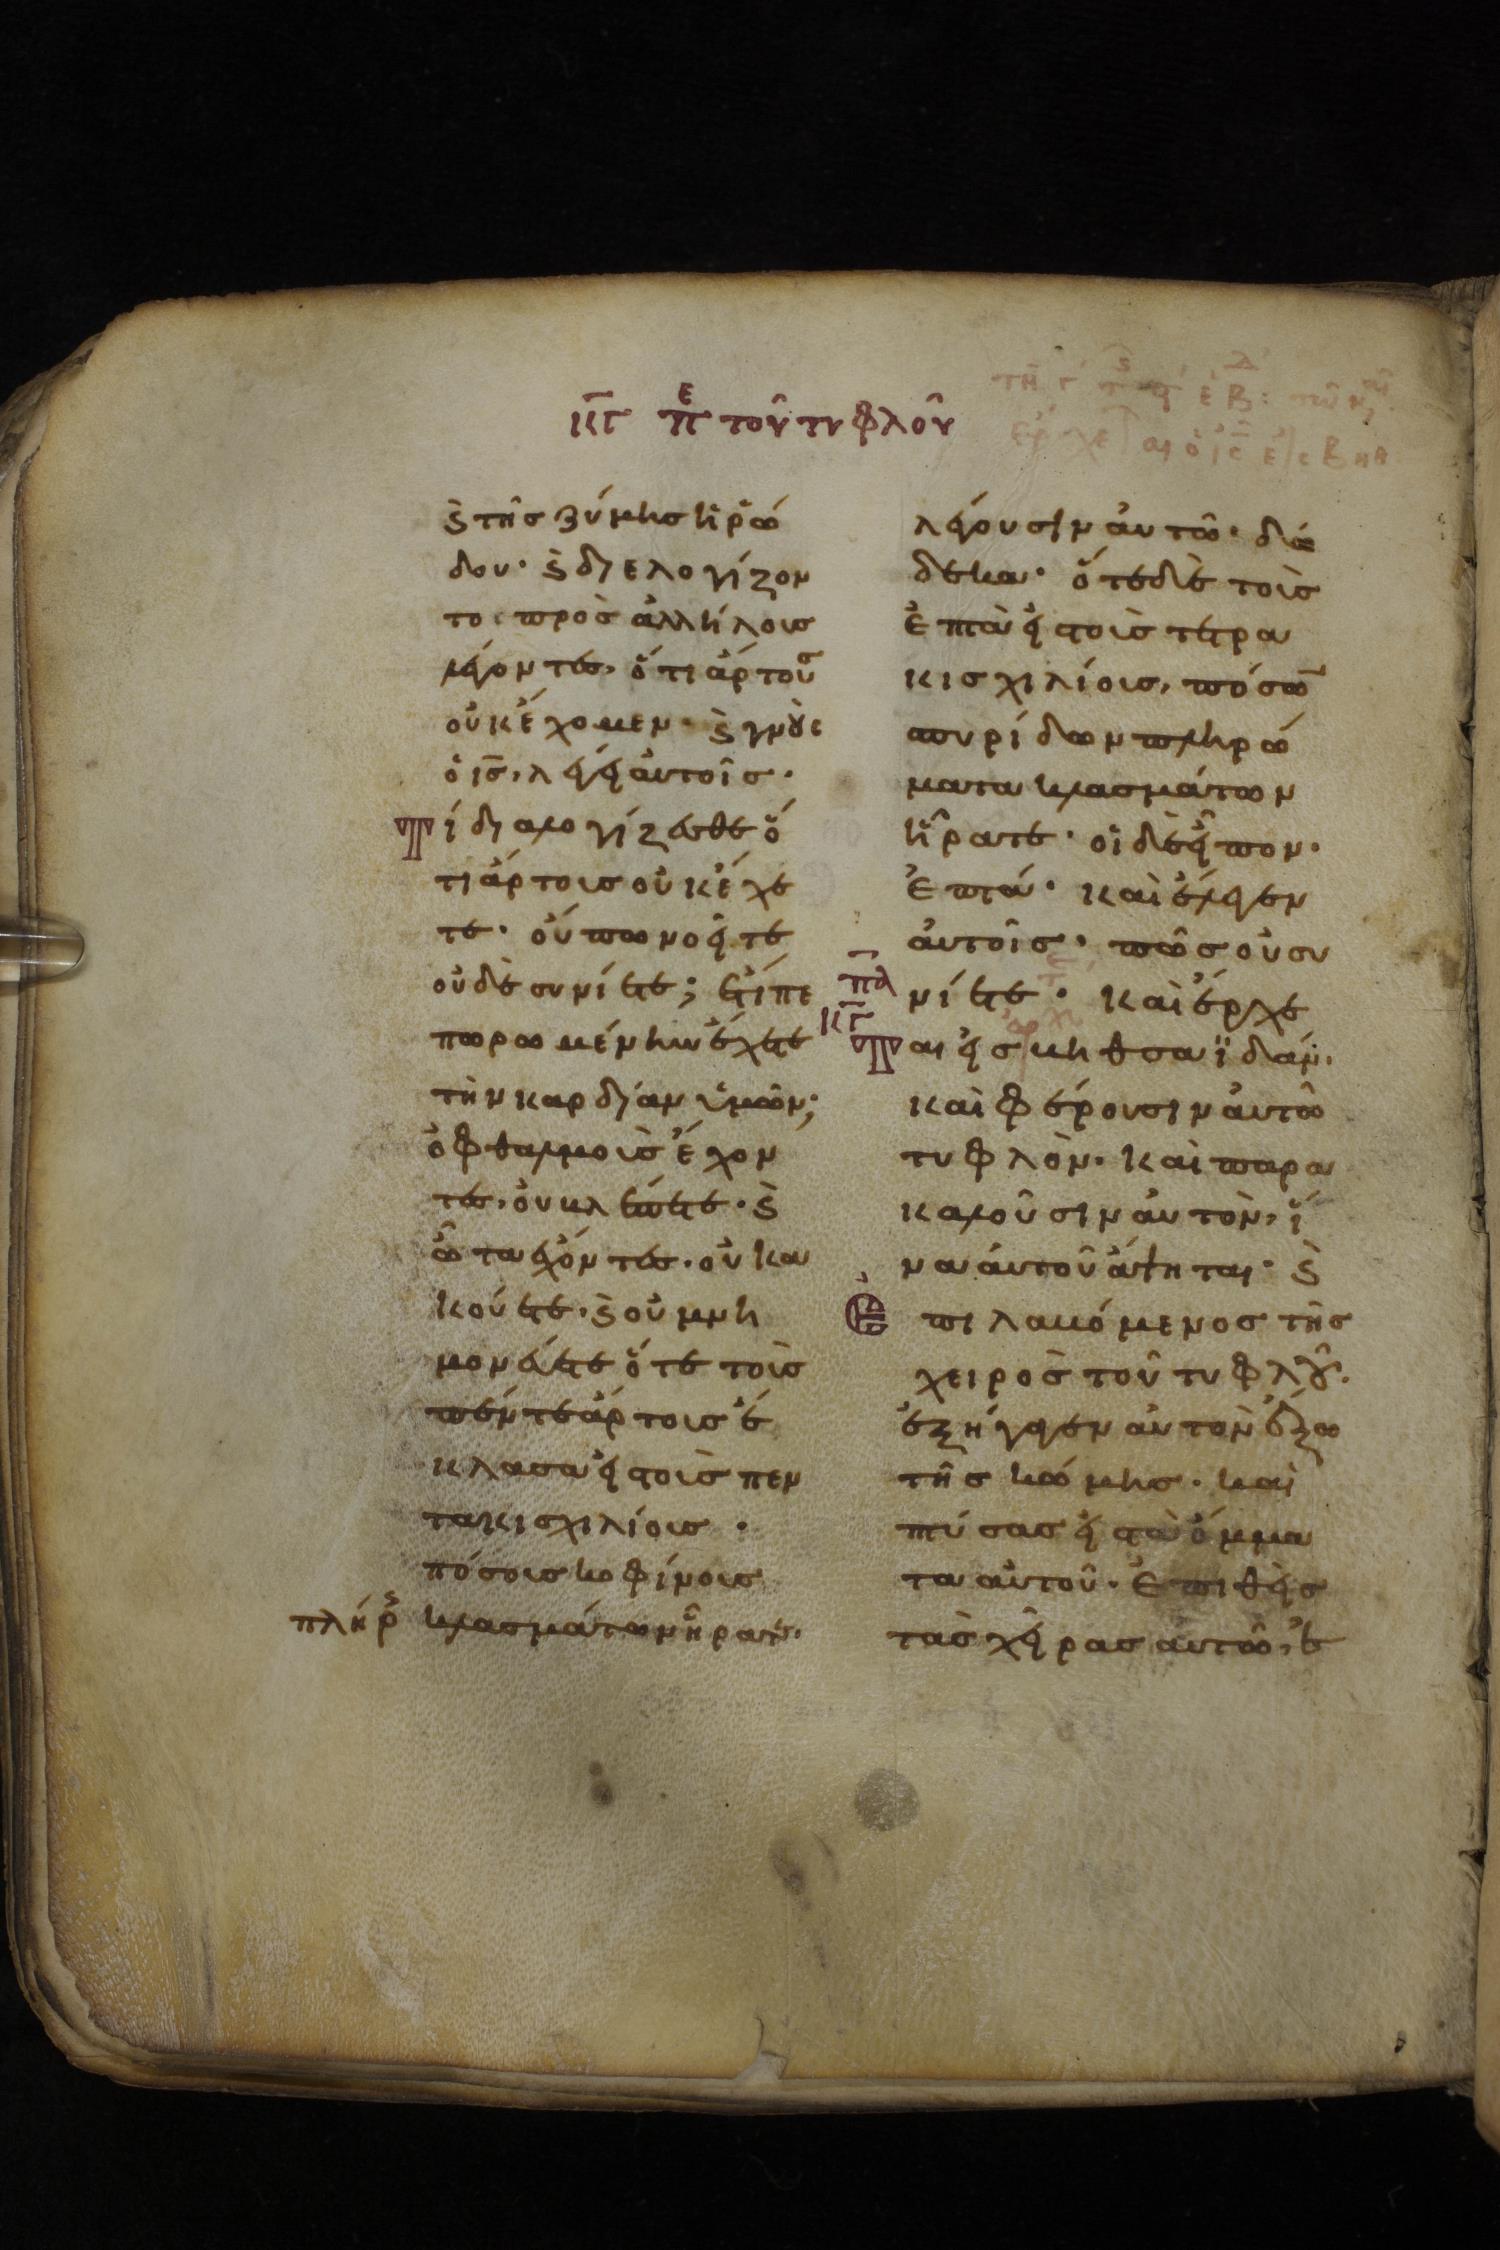 κγ πε τοῦ τυφλοῦ
τῆ γ
ϗ τῆς ζύμης ἡρώ
δου· ϗ διελογίζον
το πρὸς ἀλλήλους
λέγοντες, ὅτι ἄρτους
οὐκ ἔχομεν· ϗ γνοὺς
ὁ ις, λέγει αὐτοῖς·
Τί διαλογίζεσθε ὅ
τι ἄρτους οὐκ ἔχε
τε· οὔπω νοεῖτε
οὐδὲ συνίετε; ἔτι πε
πωρωμένην ἔχετε
τὴν καρδίαν ὑμῶν;
ὀφθαλμοὺς ἔχον
τες, οὐ βλέπετε· ϗ
ὦτα ἔχοντες, οὐκ ἀ
κούετε· ϗ οὐ μνη
μονεύετε ὅτε τοὺς
πέντε ἄρτους ἔ
κλασα εἰς τοὺς πεν
τακισχιλίους·
πόσους κοφίνους
πλήρ κλασμάτων ἤρατε·
λέγουσιν αὐτῶ· δώ
δεκα· ὅτε δὲ τοὺς
ἑπτὰ εἰς τοὺς τετρα
κισχιλίους, πόσω
σπυρίδων πληρώ
ματα κλασμάτων
ἤρατε· οἱ δὲ εἶπον·
ἑπτά· καὶ ἔλεγεν
αὐτοῖς· πῶς οὐ συ
πλ νίετε· Καὶ ἔρχε
κγ Ται εἰς βηθσαϊδάν·
καὶ φέρουσιν αὐτῶ
τυφλὸν· καὶ παρα
καλοῦσιν αὐτὸν, ἵ
να αὐτοῦ ἅψηται· ϗ
Ἐπιλαβόμενος τῆς
χειρὸς τοῦ τυφλοῦ·
ἐξήγαγεν αὐτὸν ἔξω
τῆς κώμης· καὶ
πτύσας εἰς τὰ ὄμμα
τα αὐτοῦ· ἐπιθεὶς
τὰς χεῖρας αὐτῶ, ἐ